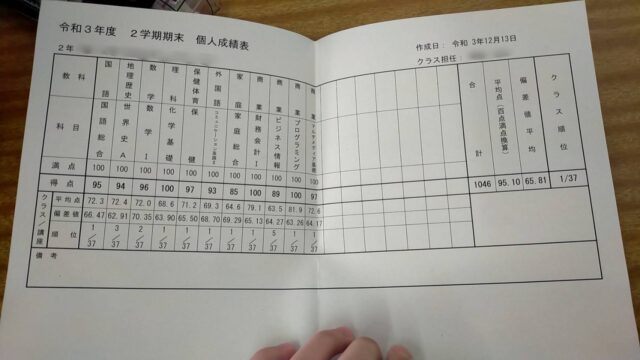 令和3年度 2学期期末 個人成績表
作成日: 令和 3年12月13日
2年
クラス担任:
教科 国語 地理歴史 数学 理科 保健体育 外国語 家庭 商業 商業 商業 商業 合計 平均点(百点満点換算) 偏差値平均 クラス順位
科目 国語総合 世界史A 数学Ⅰ 化学基礎 保健 家庭総合 財務会計Ⅰ ビジネス情報 プログラミング
満点 100 100 100 100 100 100 100 100 100 100 100
得点 95 94 96 100 97 93 85 100 100 89 97 1046 95.10 65.81 1/37
クラス/講座
平均点 72.3 72.4 72.0 68.6 71.2 69.3 64.6 79.1 63.5 81.9 72.6
偏差値 66.47 62.91 70.35 63.90 65.50 68.70 69.29 65.13 64.27 63.26 64.17
順位 1/37 3/37 2/37 1/37 1/37 1/37 1/37 1/37 5/37 1/37 1/37
備考